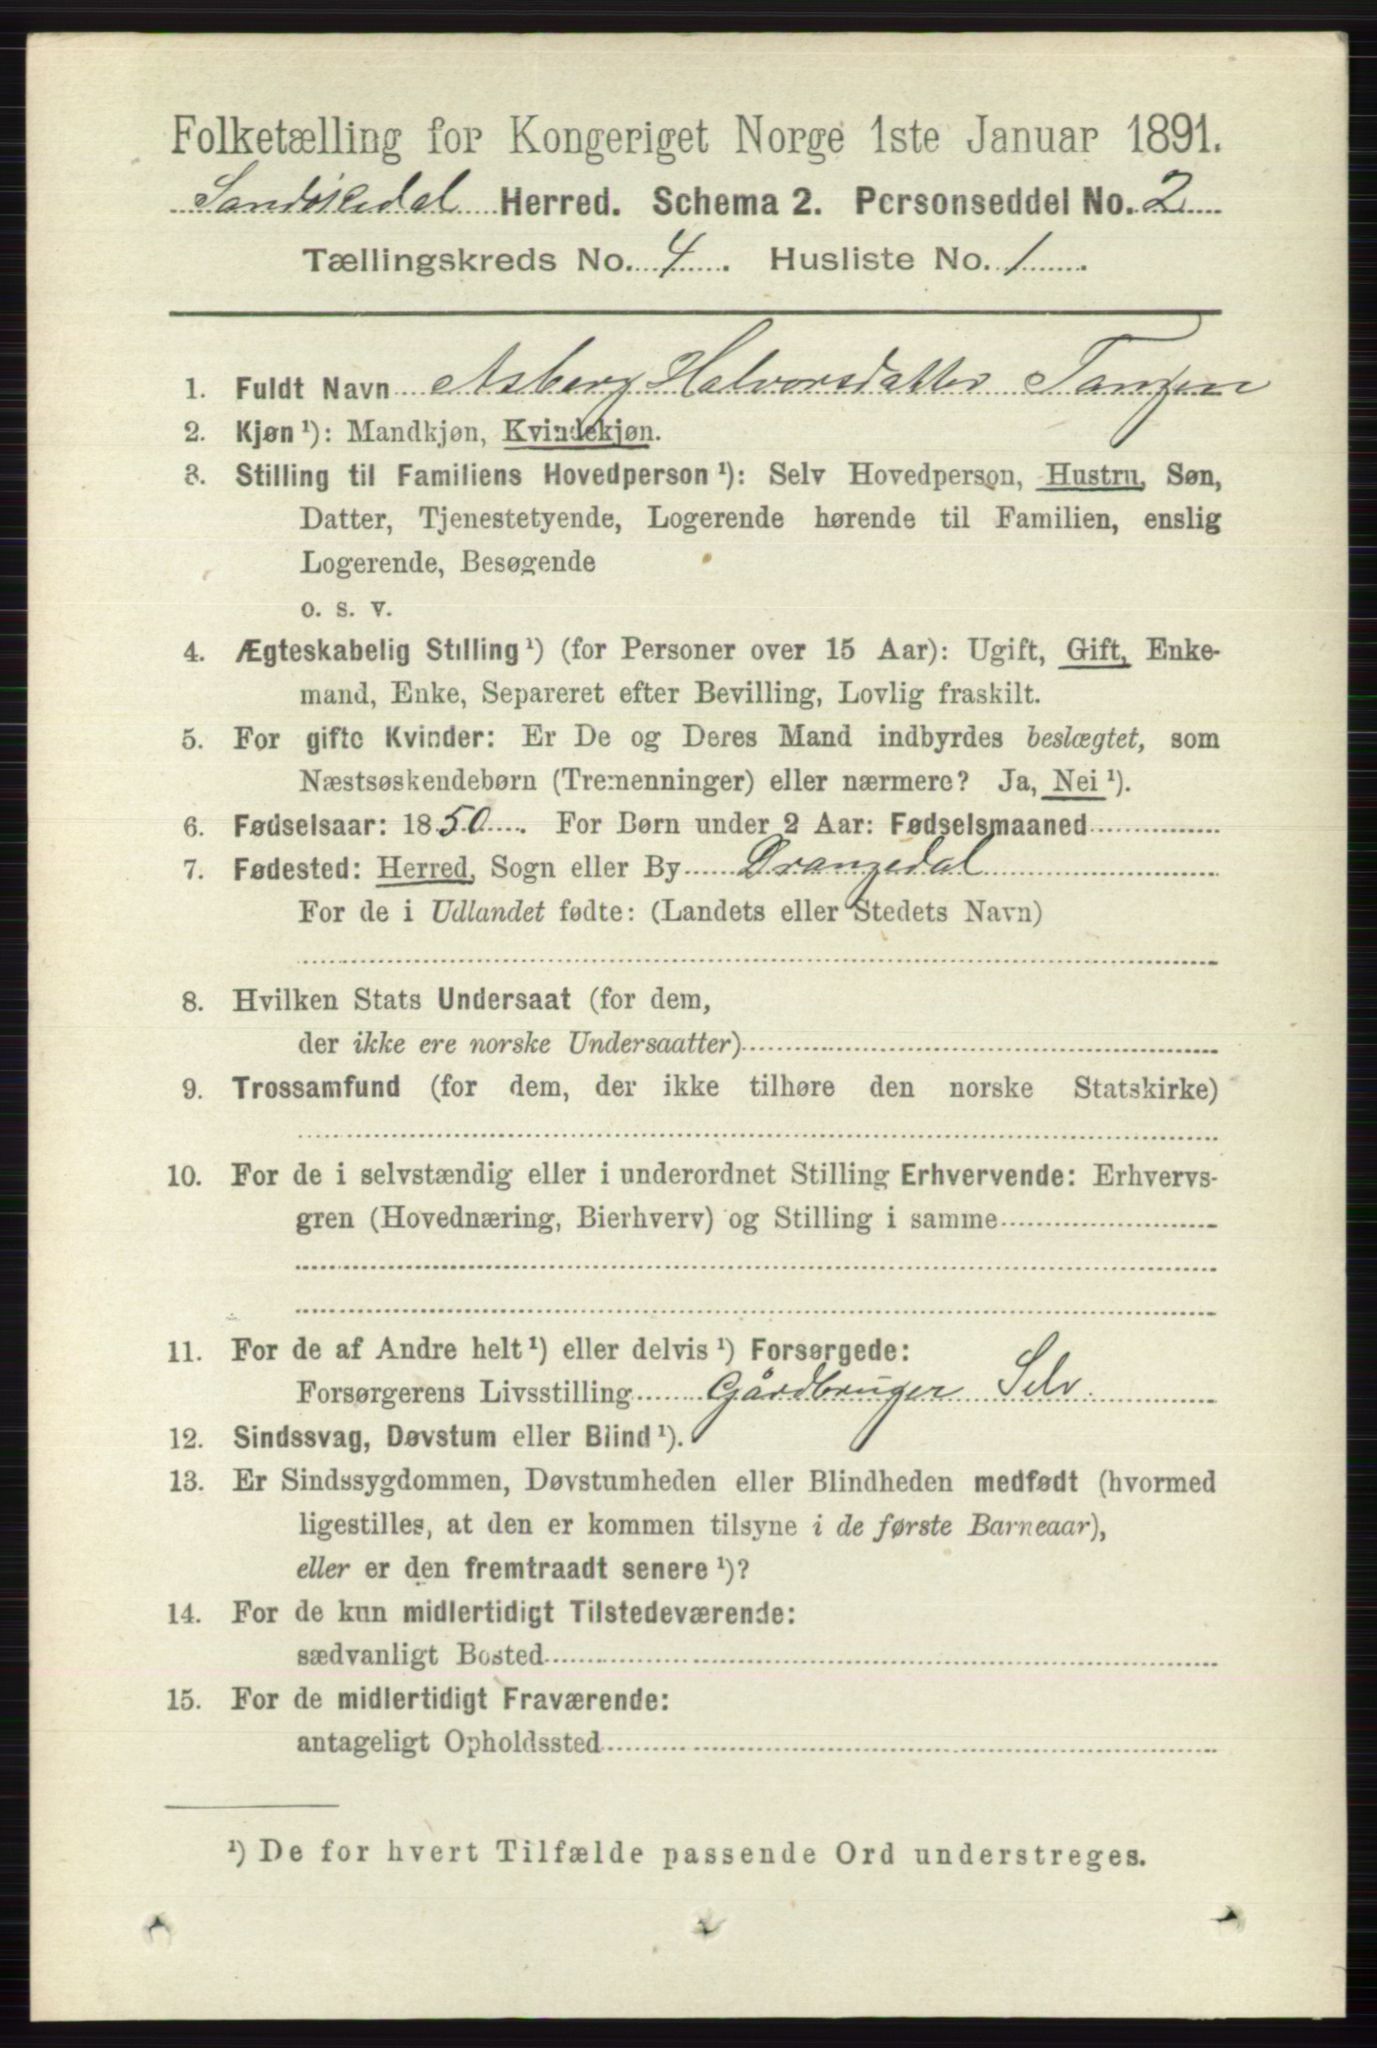 Folketælling for Kongeriget Norge 1ste Januar 1891.
Sandøkedal Herred. Schema 2. Personseddel No. 2
Tællingskreds No. 4. Husliste No. 1.
1. Fuldt Navn Asberg Halvorsdatter Tangen
2. Kjøn ¹): Mandkjøn, Kvindekjøn.
3. Stilling til Familiens Hovedperson ¹): Selv Hovedperson, Hustru, Søn,
Datter, Tjenestetyende, Logerende hørende til Familien, enslig
Logerende, Besøgende
o. s. v.
4. Ægteskabelig Stilling ¹) (for Personer over 15 Aar): Ugift, Gift, Enke-
mand, Enke, Separeret efter Bevilling, Lovlig fraskilt.
5. For gifte Kvinder: Er De og Deres Mand indbyrdes beslægtet, som
Næstsøskendebørn (Tremenninger) eller nærmere? Ja, Nei ¹).
6. Fødselsaar: 1850. For Børn under 2 Aar: Fødselsmaaned
7. Fødested: Herred, Sogn eller By Drangedal
For de i Udlandet fødte: (Landets eller Stedets Navn)
8. Hvilken Stats Undersaat (for dem,
der ikke ere norske Undersaatter)
9. Trossamfund (for dem, der ikke tilhøre den norske Statskirke)
10. For de i selvstændig eller i underordnet Stilling Erhvervende: Erhvervs-
gren (Hovednæring, Bierhverv) og Stilling i samme
11. For de af Andre helt ¹) eller delvis ¹) Forsørgede:
Forsørgerens Livsstilling Gårdbruger Selv.
12. Sindssvag, Døvstum eller Blind ¹).
13. Er Sindssygdommen, Døvstumheden eller Blindheden medfødt (hvormed
ligestilles, at den er kommen tilsyne i de første Barneaar),
eller er den fremtraadt senere ¹)?
14. For de kun midlertidigt Tilstedeværende:
sædvanligt Bosted
15. For de midlertidigt Fraværende:
antageligt Opholdssted
¹) De for hvert Tilfælde passende Ord understreges.